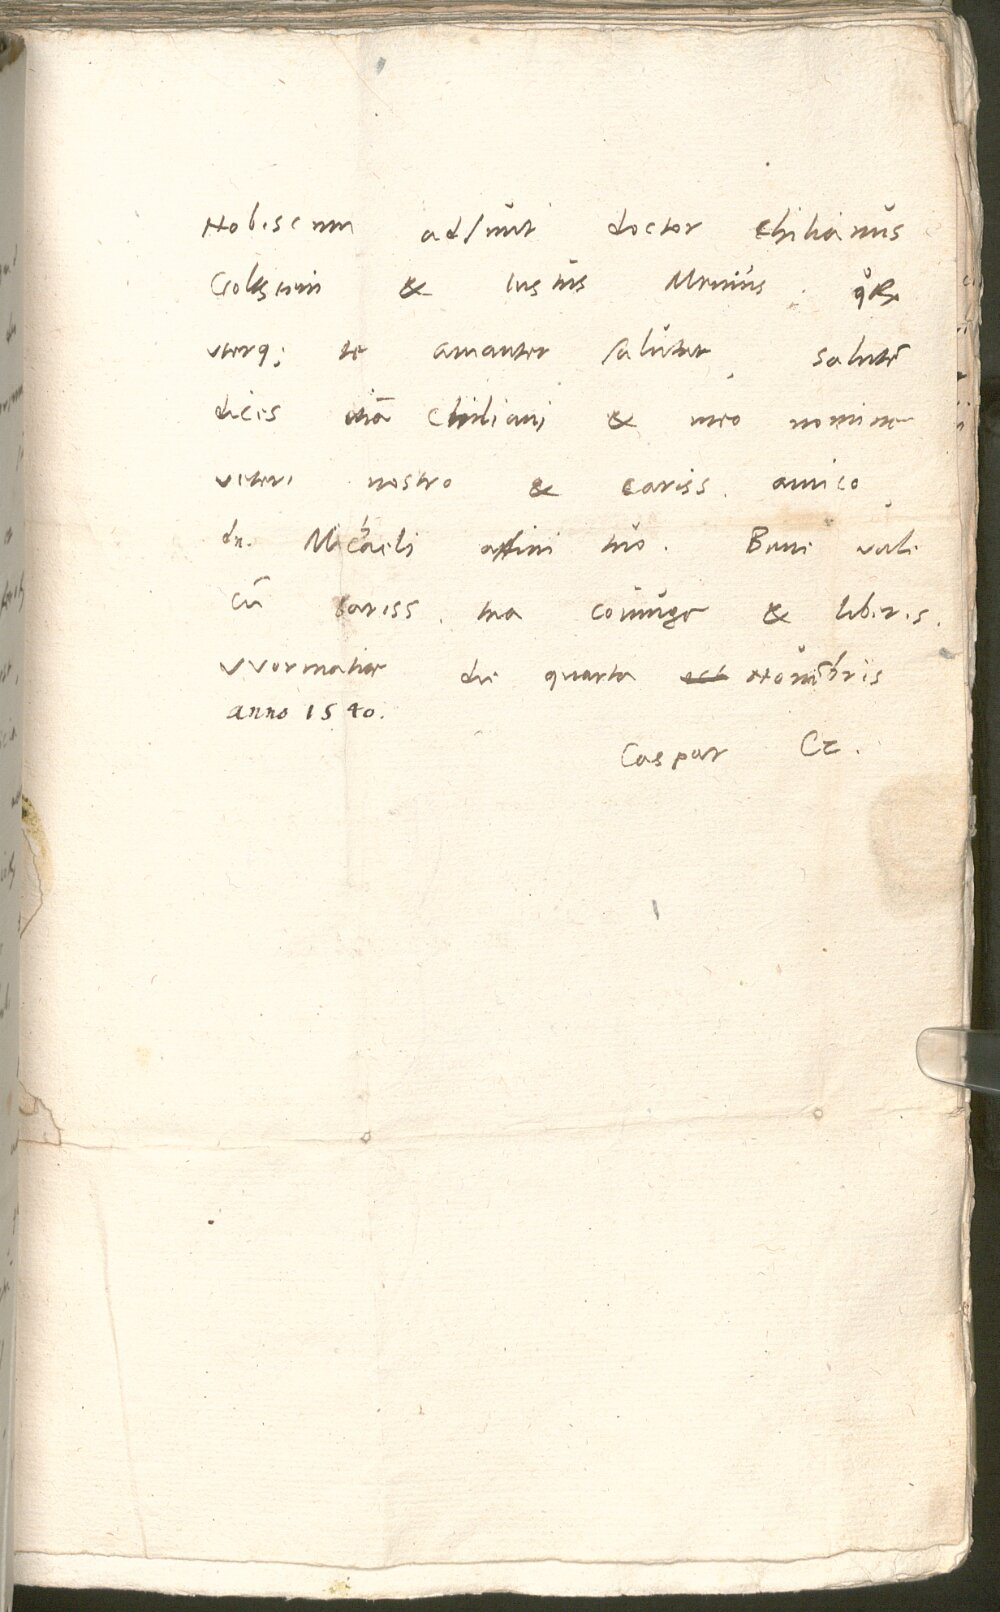 Nobiscum adsunt doctor Chilianus
Goltstein & Iustus Menius. quoꝝ
uterq; te amanter salutat, salutē
dices etiā Chiliani & meo nomine
veteri nostro & cariss. amico
dn. Michaeli affini tuo. Bene vale
cū cariss. tua coniuge & liberis.
VVormatiae die quarta Nouēbris
anno 1540.
Caspar Cr.